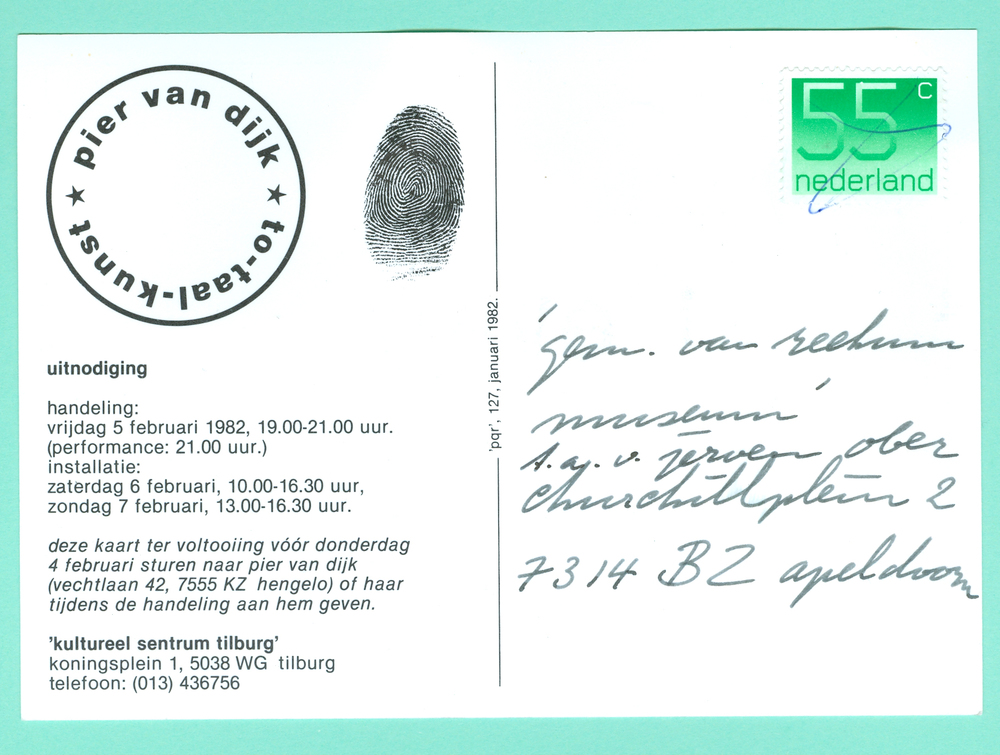 pier van dijk
to-taal-kunst
uitnodiging
handeling:
vrijdag 5 februari 1982, 19.00-21.00 uur.
(performance: 21.00 uur.)
installatie:
zaterdag 6 februari, 10.00-16.30 uur,
zondag 7 februari, 13.00-16.30 uur.
deze kaart ter voltooiing vóór donderdag
4 februari sturen naar pier van dijk
(vechtlaan 42, 7555 KZ hengelo) of haar
tijdens de handeling aan hem geven.
'kultureel sentrum tilburg'
koningsplein 1, 5038 WG tilburg
telefoon: (013) 436756
'pqr', 127, januari 1982.
55 c
nederland
'gem. van reekum
museum'
t.a.v. jerven ober
churchillplein 2
7314 BZ apeldoorn